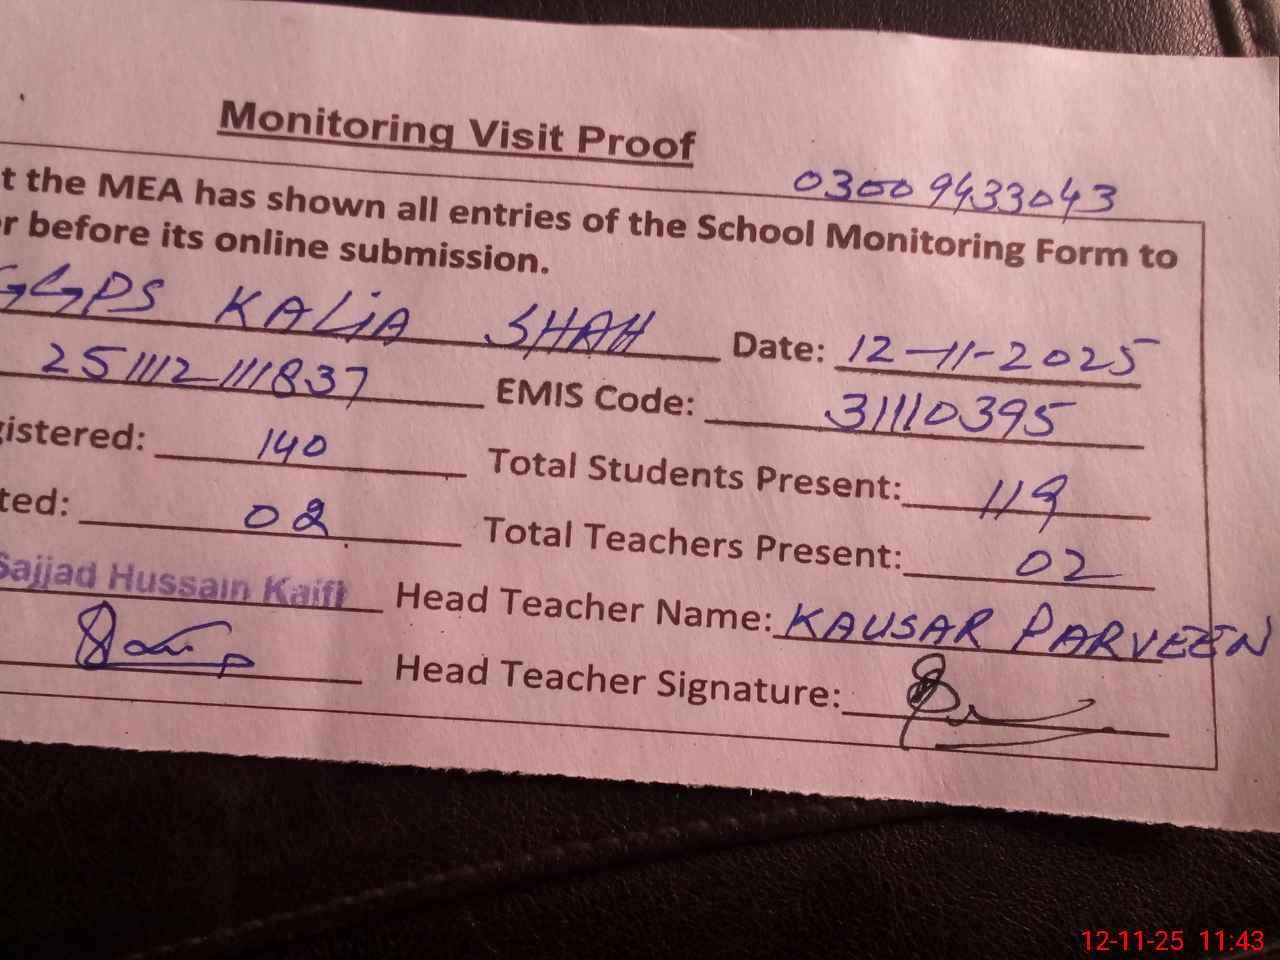 Monitoring Visit Proof
03009433043
t the MEA has shown all entries of the School Monitoring Form to
r before its online submission.
GGPS KALiA SHAH Date: 12-11-2025
251112111837 EMIS Code: 31110395
gistered: 140 Total Students Present: 119
ted: 02 Total Teachers Present: 02
Sajjad Hussain Kaifi Head Teacher Name: KAUSAR PARVEEN
Head Teacher Signature:
12-11-25 11:43